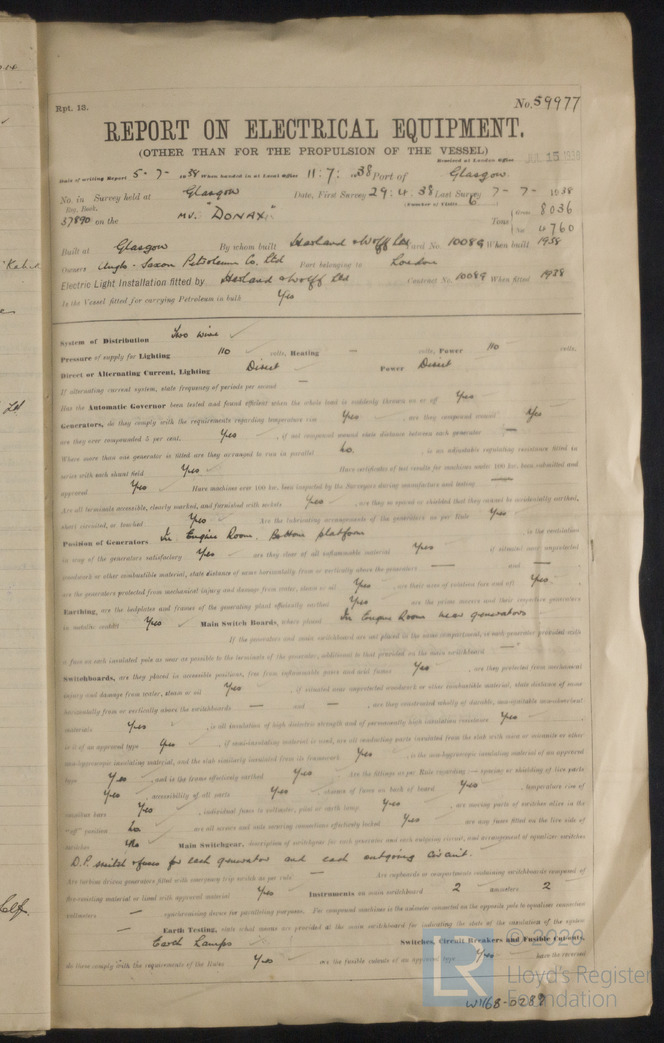 Rpt. 13.
No. 59977
REPORT ON ELECTRICAL EQUIPMENT.
(OTHER THAN FOR THE PROPULSION OF THE VESSEL)
Received at London Office JUL 15 1938
Date of writing Report 5-7-1938 When handed in at Local Office 11:7:1938 Port of Glasgow
No. in Survey held at Glasgow Date, First Survey 29:4:38 Last Survey 7-7-1938
Reg. Book. (Number of Visits 6)
37890 on the MV. "DONAX" Tons Gross 8036
Net 4760
Built at Glasgow By whom built Harland & Wolff Ltd Yard No. 1008G When built 1938
Owners Anglo-Saxon Petroleum Co. Ltd Port belonging to London
Electric Light Installation fitted by Harland & Wolff Ltd Contract No. 1008G When fitted 1938
Is the Vessel fitted for carrying Petroleum in bulk Yes
System of Distribution Two wire
Pressure of supply for Lighting 110 volts, Heating — volts, Power 110 volts.
Direct or Alternating Current, Lighting Direct Power Direct
If alternating current system, state frequency of periods per second —
Has the Automatic Governor been tested and found efficient when the whole load is suddenly thrown on or off Yes
Generators, do they comply with the requirements regarding temperature rise Yes, are they compound wound Yes
are they over compounded 5 per cent. Yes, if not compound wound state distance between each generator —
Where more than one generator is fitted are they arranged to run in parallel No, is an adjustable regulating resistance fitted in
series with each shunt field Yes Have certificates of test results for machines under 100 kw. been submitted and
approved Yes Have machines over 100 kw. been inspected by the Surveyors during manufacture and testing
Are all terminals accessible, clearly marked, and furnished with sockets Yes, are they so spaced or shielded that they cannot be accidentally earthed,
short circuited, or touched Yes Are the lubricating arrangements of the generators as per Rule Yes
Position of Generators In Engine Room. Bottom platform, is the ventilation
in way of the generators satisfactory Yes, are they clear of all inflammable material Yes if situated near unprotected
woodwork or other combustible material, state distance of same horizontally from or vertically above the generators — and —
are the generators protected from mechanical injury and damage from water, steam or oil Yes, are their axes of rotation fore and aft Yes
Earthing, are the bedplates and frames of the generating plant efficiently earthed Yes are the prime movers and their respective generators
in metallic contact Yes Main Switch Boards, where placed In Engine Room near generators
If the generators and main switchboard are not placed in the same compartment, is each generator provided with
a fuse on each insulated pole as near as possible to the terminals of the generator, additional to that provided on the main switchboard —
Switchboards, are they placed in accessible positions, free from inflammable gases and acid fumes Yes, are they protected from mechanical
injury and damage from water, steam or oil Yes, if situated near unprotected woodwork or other combustible material, state distance of same
horizontally from or vertically above the switchboards — and —, are they constructed wholly of durable, non-ignitable non-absorbent
materials Yes, is all insulation of high dielectric strength and of permanently high insulation resistance Yes
is it of an approved type Yes, if semi-insulating material is used, are all conducting parts insulated from the slab with mica or micanite or other
non-hygroscopic insulating material, and the slab similarly insulated from its framework Yes, is the non-hygroscopic insulating material of an approved
type Yes, and is the frame effectively earthed Yes Are the fittings as per Rule regarding:— spacing or shielding of live parts
Yes, accessibility of all parts Yes absence of fuses on back of board Yes, temperature rise of
omnibus bars Yes, individual fuses to voltmeter, pilot or earth lamp Yes, are moving parts of switches alive in the
"off" position No are all screws and nuts securing connections effectively locked Yes are any fuses fitted on the live side of
switches No Main Switchgear, description of switchgear for each generator and each outgoing circuit, and arrangement of equaliser switches
D.P. switch & fuses for each generator and each outgoing circuit.
Are turbine driven generators fitted with emergency trip switch as per rule — Are cupboards or compartments containing switchboards composed of
fire-resisting material or lined with approved material Yes Instruments on main switchboard 2 ammeters 2
voltmeters — synchronising device for paralleling purposes. For compound machines is the ammeter connected on the opposite pole to equaliser connection
— Earth Testing, state what means are provided at the main switchboard for indicating the state of the insulation of the system
Earth Lamps Switches, Circuit Breakers and Fusible Cutouts,
do these comply with the requirements of the Rules Yes are the fusible cutouts of an approved type Yes have the reversed
© 2020
Lloyd's Register
Foundation
W1168-0287